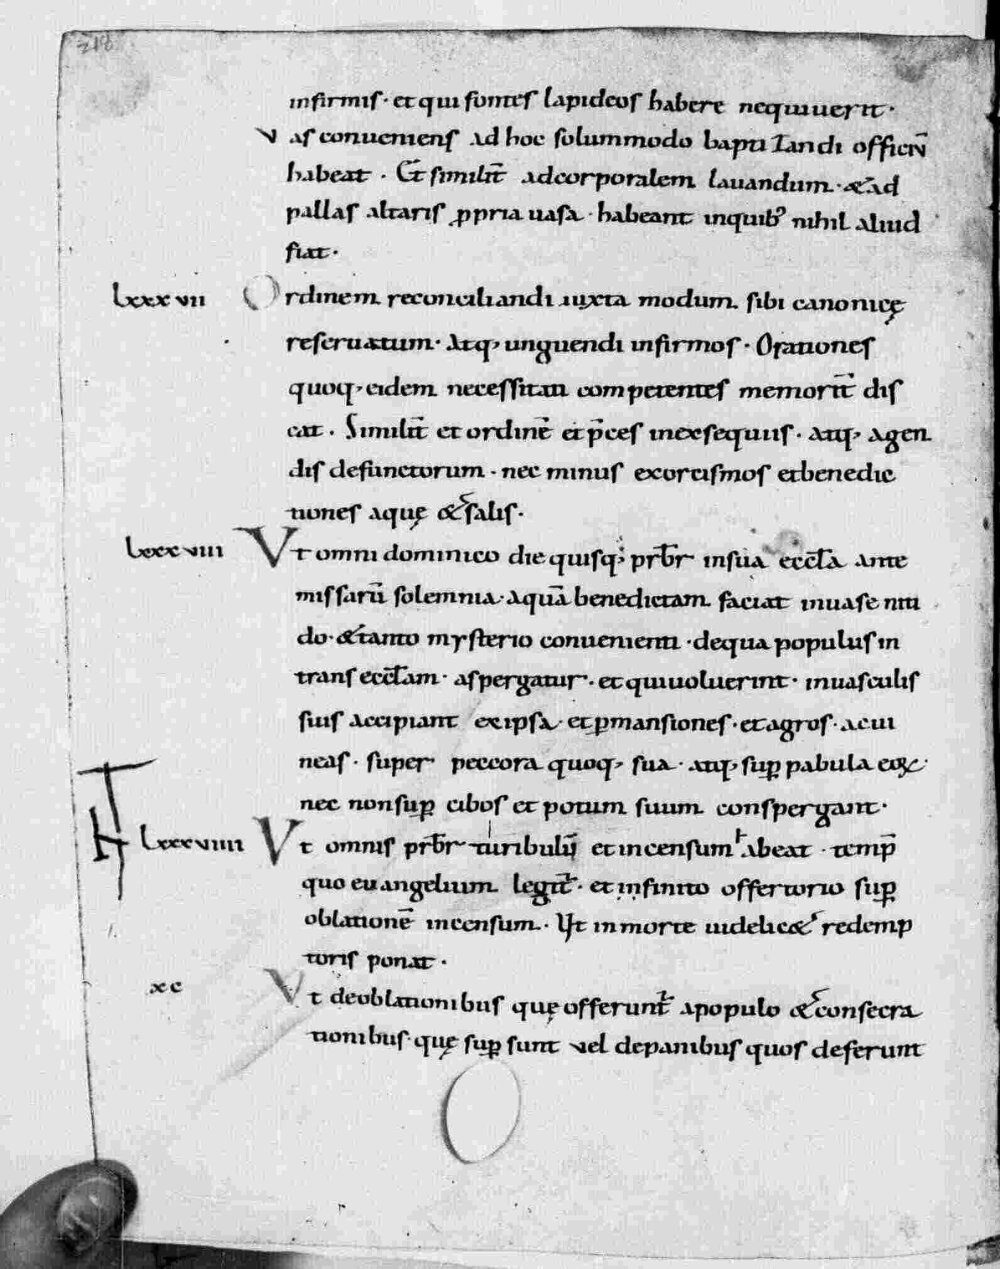 218
infirmis · et qui fontes lapideos habere nequiuerit ·
vas conueniens ad hoc solummodo baptizandi officiū
habeat · Et similit̄ ad corporalem lauandum · & ad
pallas altaris ꝓpria uasa · habeant in quib; nihil aliud
fiat ·
lxxxvii Ordinem reconciliandi iuxta modum sibi canonicę
reseruatum · Atq; unguendi infirmos · Orationes
quoq; eidem necessitati competentes memorit̄ dis
cat · Similit̄ et ordinē et p̄ces in exsequiis · atq; agen
dis defunctorum · nec minus exorcismos et benedic
tiones aquę & salis ·
lxxxviii Vt omni dominico die quisq; prb̄r in sua eccl̄a ante
missarū solemnia · aquā benedictam faciat in uase niti
do · & tanto mysterio conuenienti · de qua populus in
trans eccl̄am · aspergatur · et qui uoluerint · in uasculis
suis accipiant ex ipsa · et ꝑ mansiones · et agros · ac ui
neas · super peccora quoq; sua · atq; suꝑ pabula eoꝝ ·
nec non suꝑ cibos et potum suum conspergant ·
lxxxviiii Vt omnis prb̄r turibulū et incensum habeat · temp̄
quo euangelium legit̄ · et in finito offertorio suꝑ
oblationē incensum · Vt in morte uidelic& redemp
toris ponat ·
xc Vt de oblationibus quę offerunt̄ a populo & consecra
tionibus quę suꝑsunt vel de panibus quos deferunt